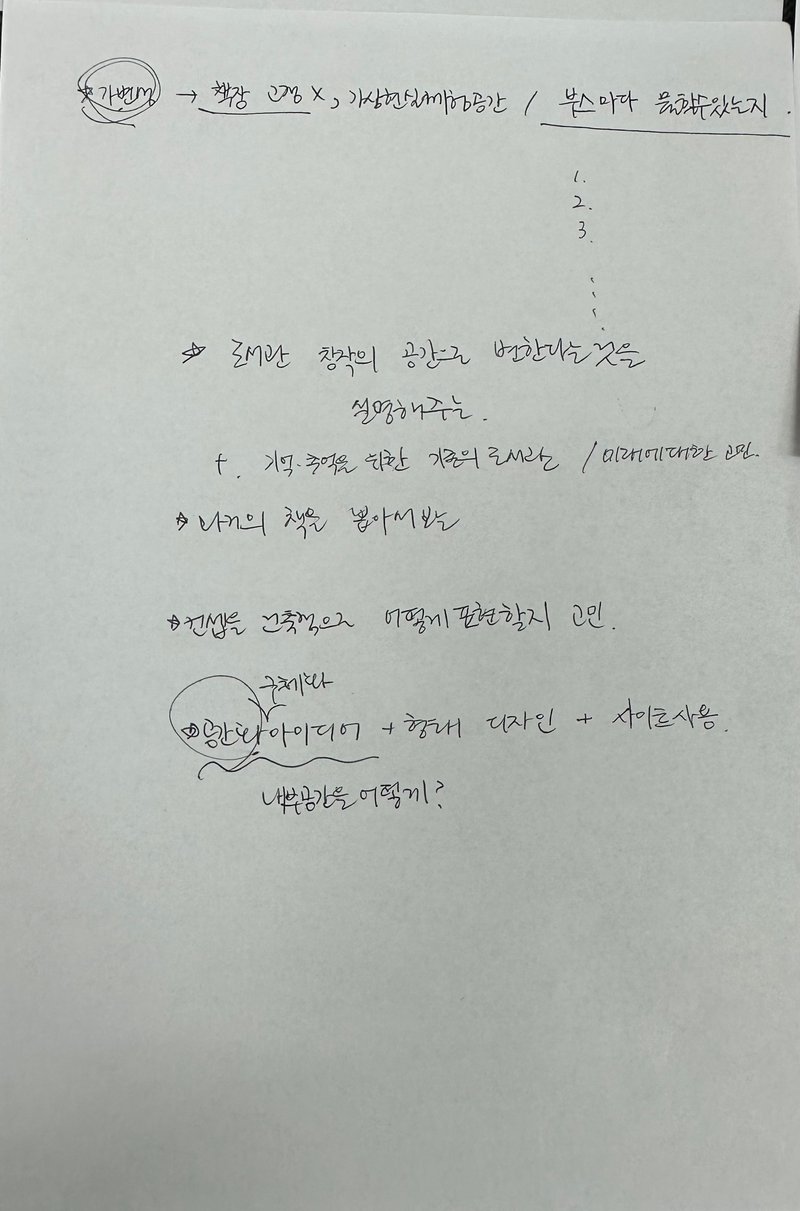 ☆가변성 → 책장 고정 X, 가상현실체험공간 / 부스마다 뭘할수있는지.
1.
2.
3.
☆ 도서관 창작의 공간으로 변한다는 것을
설명해주는.
+. 기억·추억을 위한 기존의 도서관는 / 미래에대한 고민.
☆ 나기의 책을 뽑아서 보는
☆컨셉을 건축적으로 어떻게 표현할지 고민.
구체화
☆공간화 아이디어 + 형태 디자인 + 사이트사용.
내부공간을 어떻게?